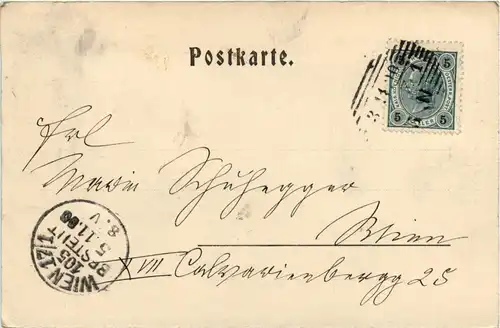 Postkarte.
5 5
5 5
Frl
Marie Schuhegger
Wien
XVII Calvarienbergg 25
WIEN 17/1
105
BESTELLT
5.11.00
8.V